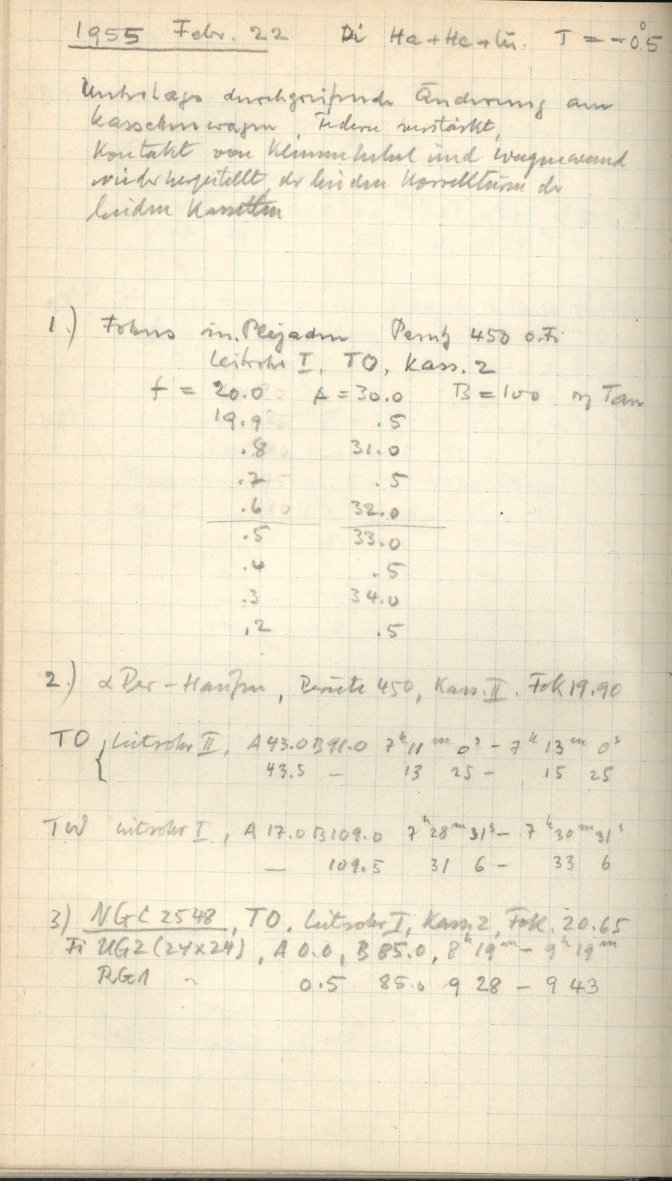 1955 Febr. 22 Di Ha + He + Lü. T = -0°.5
durchgreifende Änderung am
Kassettenwagen, Federn verstärkt,
Kontakt von Klemmhebel und Wagenwand
wiederhergestellt, der beiden Korrekturen der
beiden Kassetten
1.) Fokus in Plejaden Perutz 450 o. Fi
Leitrohr I, TO, Kass. 2
f = 20.0 A = 30.0 B = 100 Tau
19.9 .5
.8 31.0
.7 .5
.6 32.0
.5 33.0
.4 .5
.3 34.0
.2 .5
2.) α Per-Haufen, Perutz 450, Kass. II. Fok 19.90
TO { Leitrohr II, A 43.0 B 98.0 7h 11m 0s - 7h 13m 0s
43.5 - 13 25 - 15 25
TW Leitrohr I, A 17.0 B 109.0 7h 28m 31s - 7h 30m 31s
- 109.5 31 6 - 33 6
3) NGC 2548, TO, Leitrohr I, Kass. 2, Fok. 20.65
Fi UG2 (24x24), A 0.0, B 85.0, 8h 19m - 9h 19m
RG1 ~ 0.5 85.0 9 28 - 9 43